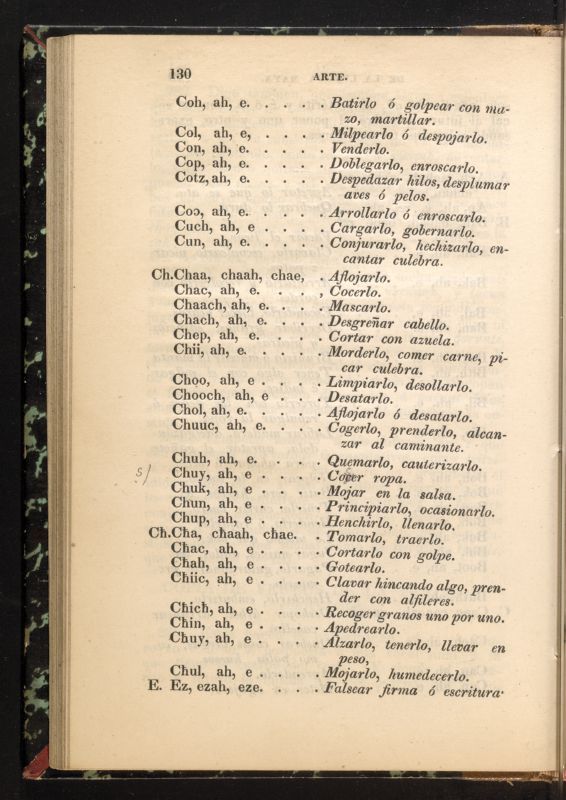 130 ARTE.
Coh, ah, e. . . . . Batirlo ó golpear con ma-
zo, martillar.
Col, ah, e, . . . . Milpearlo ó despojarlo.
Con, ah, e. . . . . Venderlo.
Cop, ah, e. . . . . Doblegarlo, enroscarlo.
Cotz, ah, e. . . . . Despedazar hilos, desplumar
aves ó pelos.
Coɔ, ah, e. . . . . Arrollarlo ó enroscarlo.
Cuch, ah, e . . . . Cargarlo, gobernarlo.
Cun, ah, e. . . . . Conjurarlo, hechizarlo, en-
cantar culebra.
Ch. Chaa, chaah, chae, . Aflojarlo.
Chac, ah, e. . . . , Cocerlo.
Chaach, ah, e. . . . Mascarlo.
Chach, ah, e. . . . Desgreñar cabello.
Chep, ah, e. . . . . Cortar con azuela.
Chii, ah, e. . . . . Morderlo, comer carne, pi-
car culebra.
Choo, ah, e . . . . Limpiarlo, desollarlo.
Chooch, ah, e . . . Desatarlo.
Chol, ah, e. . . . . Aflojarlo ó desatarlo.
Chuuc, ah, e. . . . Cogerlo, prenderlo, alcan-
zar al caminante.
Chuh, ah, e. . . . . Quemarlo, cauterizarlo.
s/ Chuy, ah, e . . . . Cocer ropa.
Chuk, ah, e . . . . Mojar en la salsa.
Chun, ah, e . . . . Principiarlo, ocasionarlo.
Chup, ah, e . . . . Henchirlo, llenarlo.
Cħ. Cħa, cħaah, cħae. . Tomarlo, traerlo.
Cħac, ah, e . . . . Cortarlo con golpe.
Cħah, ah, e . . . . Gotearlo.
Cħiic, ah, e . . . . Clavar hincando algo, pren-
der con alfileres.
Cħicħ, ah, e . . . . Recoger granos uno por uno.
Cħin, ah, e . . . . Apedrearlo.
Cħuy, ah, e . . . . Alzarlo, tenerlo, llevar en
peso,
Cħul, ah, e . . . . Mojarlo, humedecerlo.
E. Ez, ezah, eze. . . . Falsear firma ó escritura·